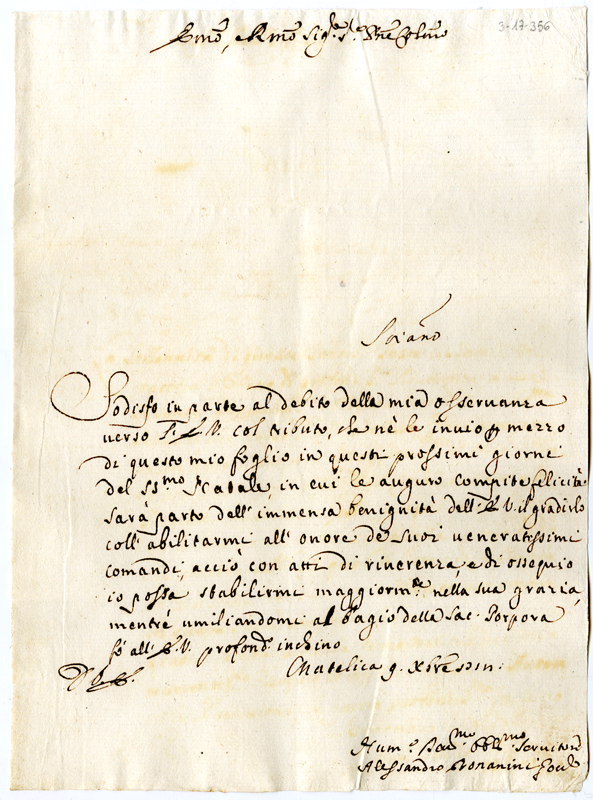 3-17-356
Emo, e Rmo Sig.r S.r Pne Colmo
Soriano
Sodisfo in parte al debito della mia osservanza
verso l'E.V. col tributo, che nè le invio p mezzo
di questo mio foglio in questi prossimi giorni
del SS.mo Natale, in cui le auguro compite felicità
sarà parto dell'immensa benignità dell'E.V. il gradirlo
coll'abilitarmi all'onore de Suoi veneratissimi
comandi, acciò con atti di riverenza, e di ossequio
io possa stabilirmi maggiorm.te nella sua grazia,
mentre umiliandomi al bagio della Sac. Porpora
fò all'E.V. profond. inchino
D. V. E. Matelica 9. Xbre
Hum.o Dev.mo Obbl.mo Servitore
Alessandro